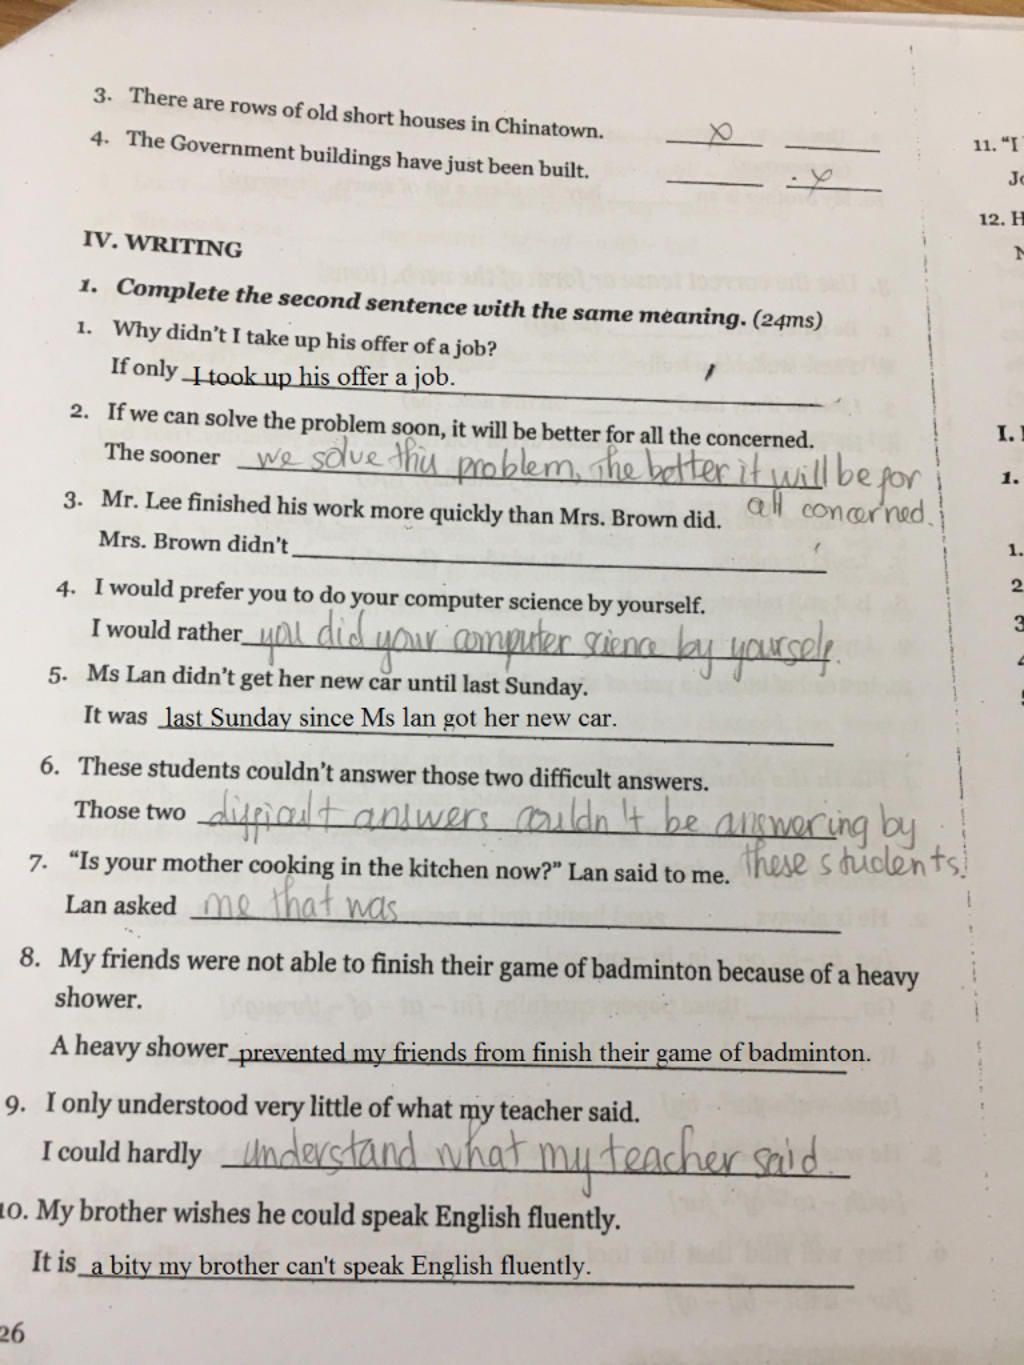 3. There are rows of old short houses in Chinatown.
4. The Government buildings have just been built.
11. "I
12. H
IV. WRITING
1. Complete the second sentence with the same meaning. (24ms)
1. Why didn't I take up his offer of a job?
If only I took up his offer a job.
2. If we can solve the problem soon, it will be better for all the concerned.
The sooner we solve this problem, The better it will be for
all concerned.
3. Mr. Lee finished his work more quickly than Mrs. Brown did.
Mrs. Brown didn't
4. I would prefer you to do your computer science by yourself.
I would rather you did your computer science by yourself.
5. Ms Lan didn't get her new car until last Sunday.
It was last Sunday since Ms lan got her new car.
6. These students couldn't answer those two difficult answers.
Those two difficult answers couldn't be answering by
these students.
7. "Is your mother cooking in the kitchen now?" Lan said to me.
Lan asked me that was
8. My friends were not able to finish their game of badminton because of a heavy
shower.
A heavy shower prevented my friends from finish their game of badminton.
9. I only understood very little of what my teacher said.
I could hardly understand what my teacher said.
10. My brother wishes he could speak English fluently.
It is a bity my brother can't speak English fluently.
26
I.
1.
1.
2
3